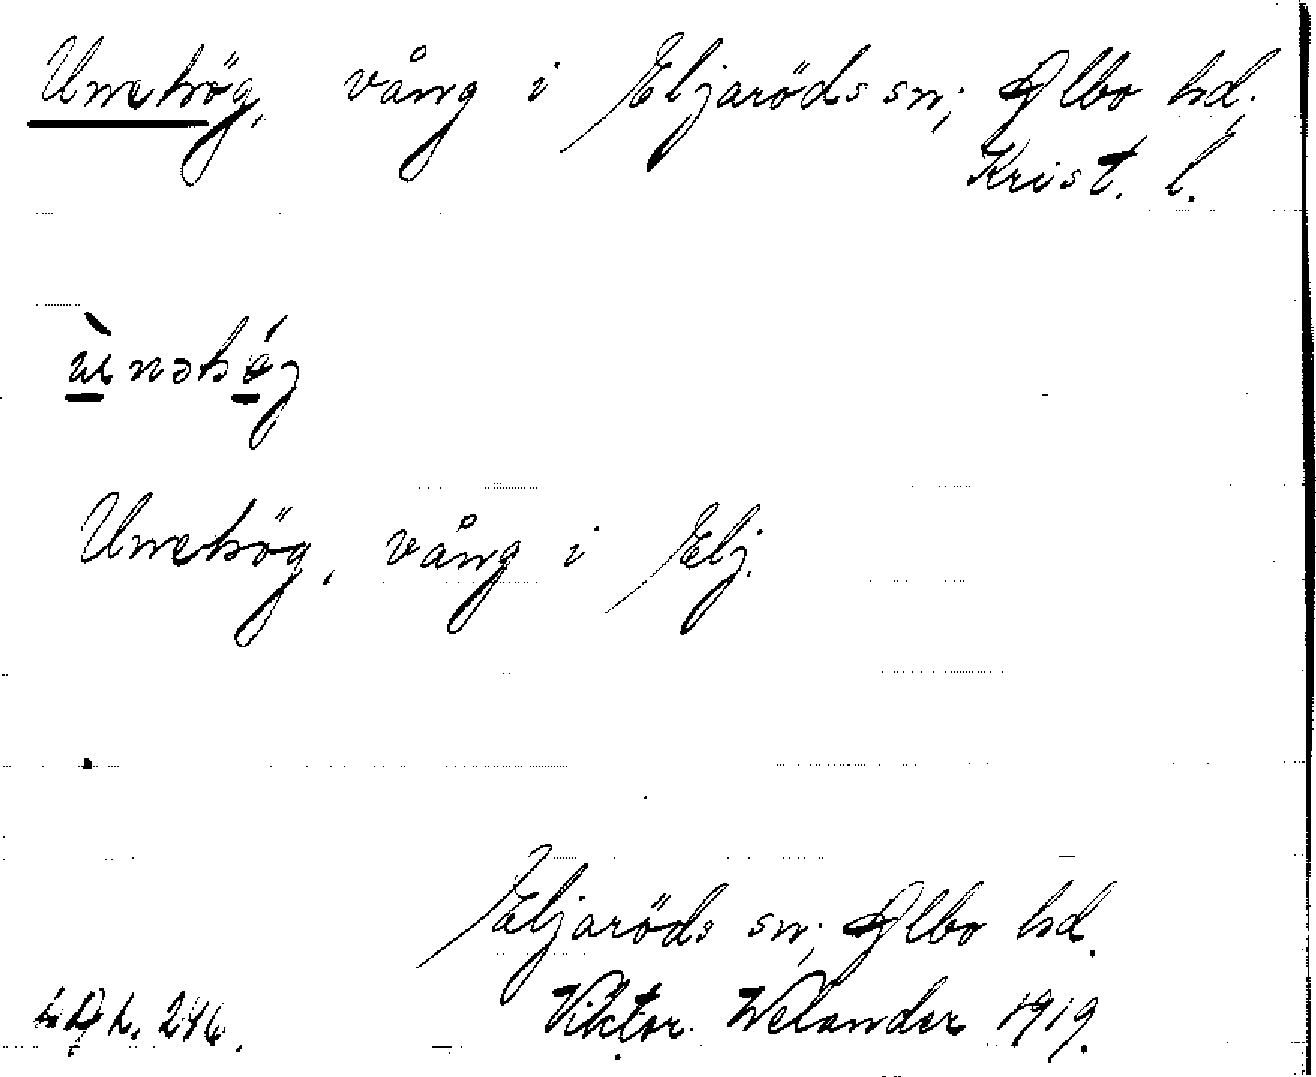 Unehög, vång i Eljaröds sn; Albo hd.
Krist. l.
ùnəhǿg
Unehög, vång i Elj.
Eljaröds sn; Albo hd.
Viktor Welander 1919.
246.